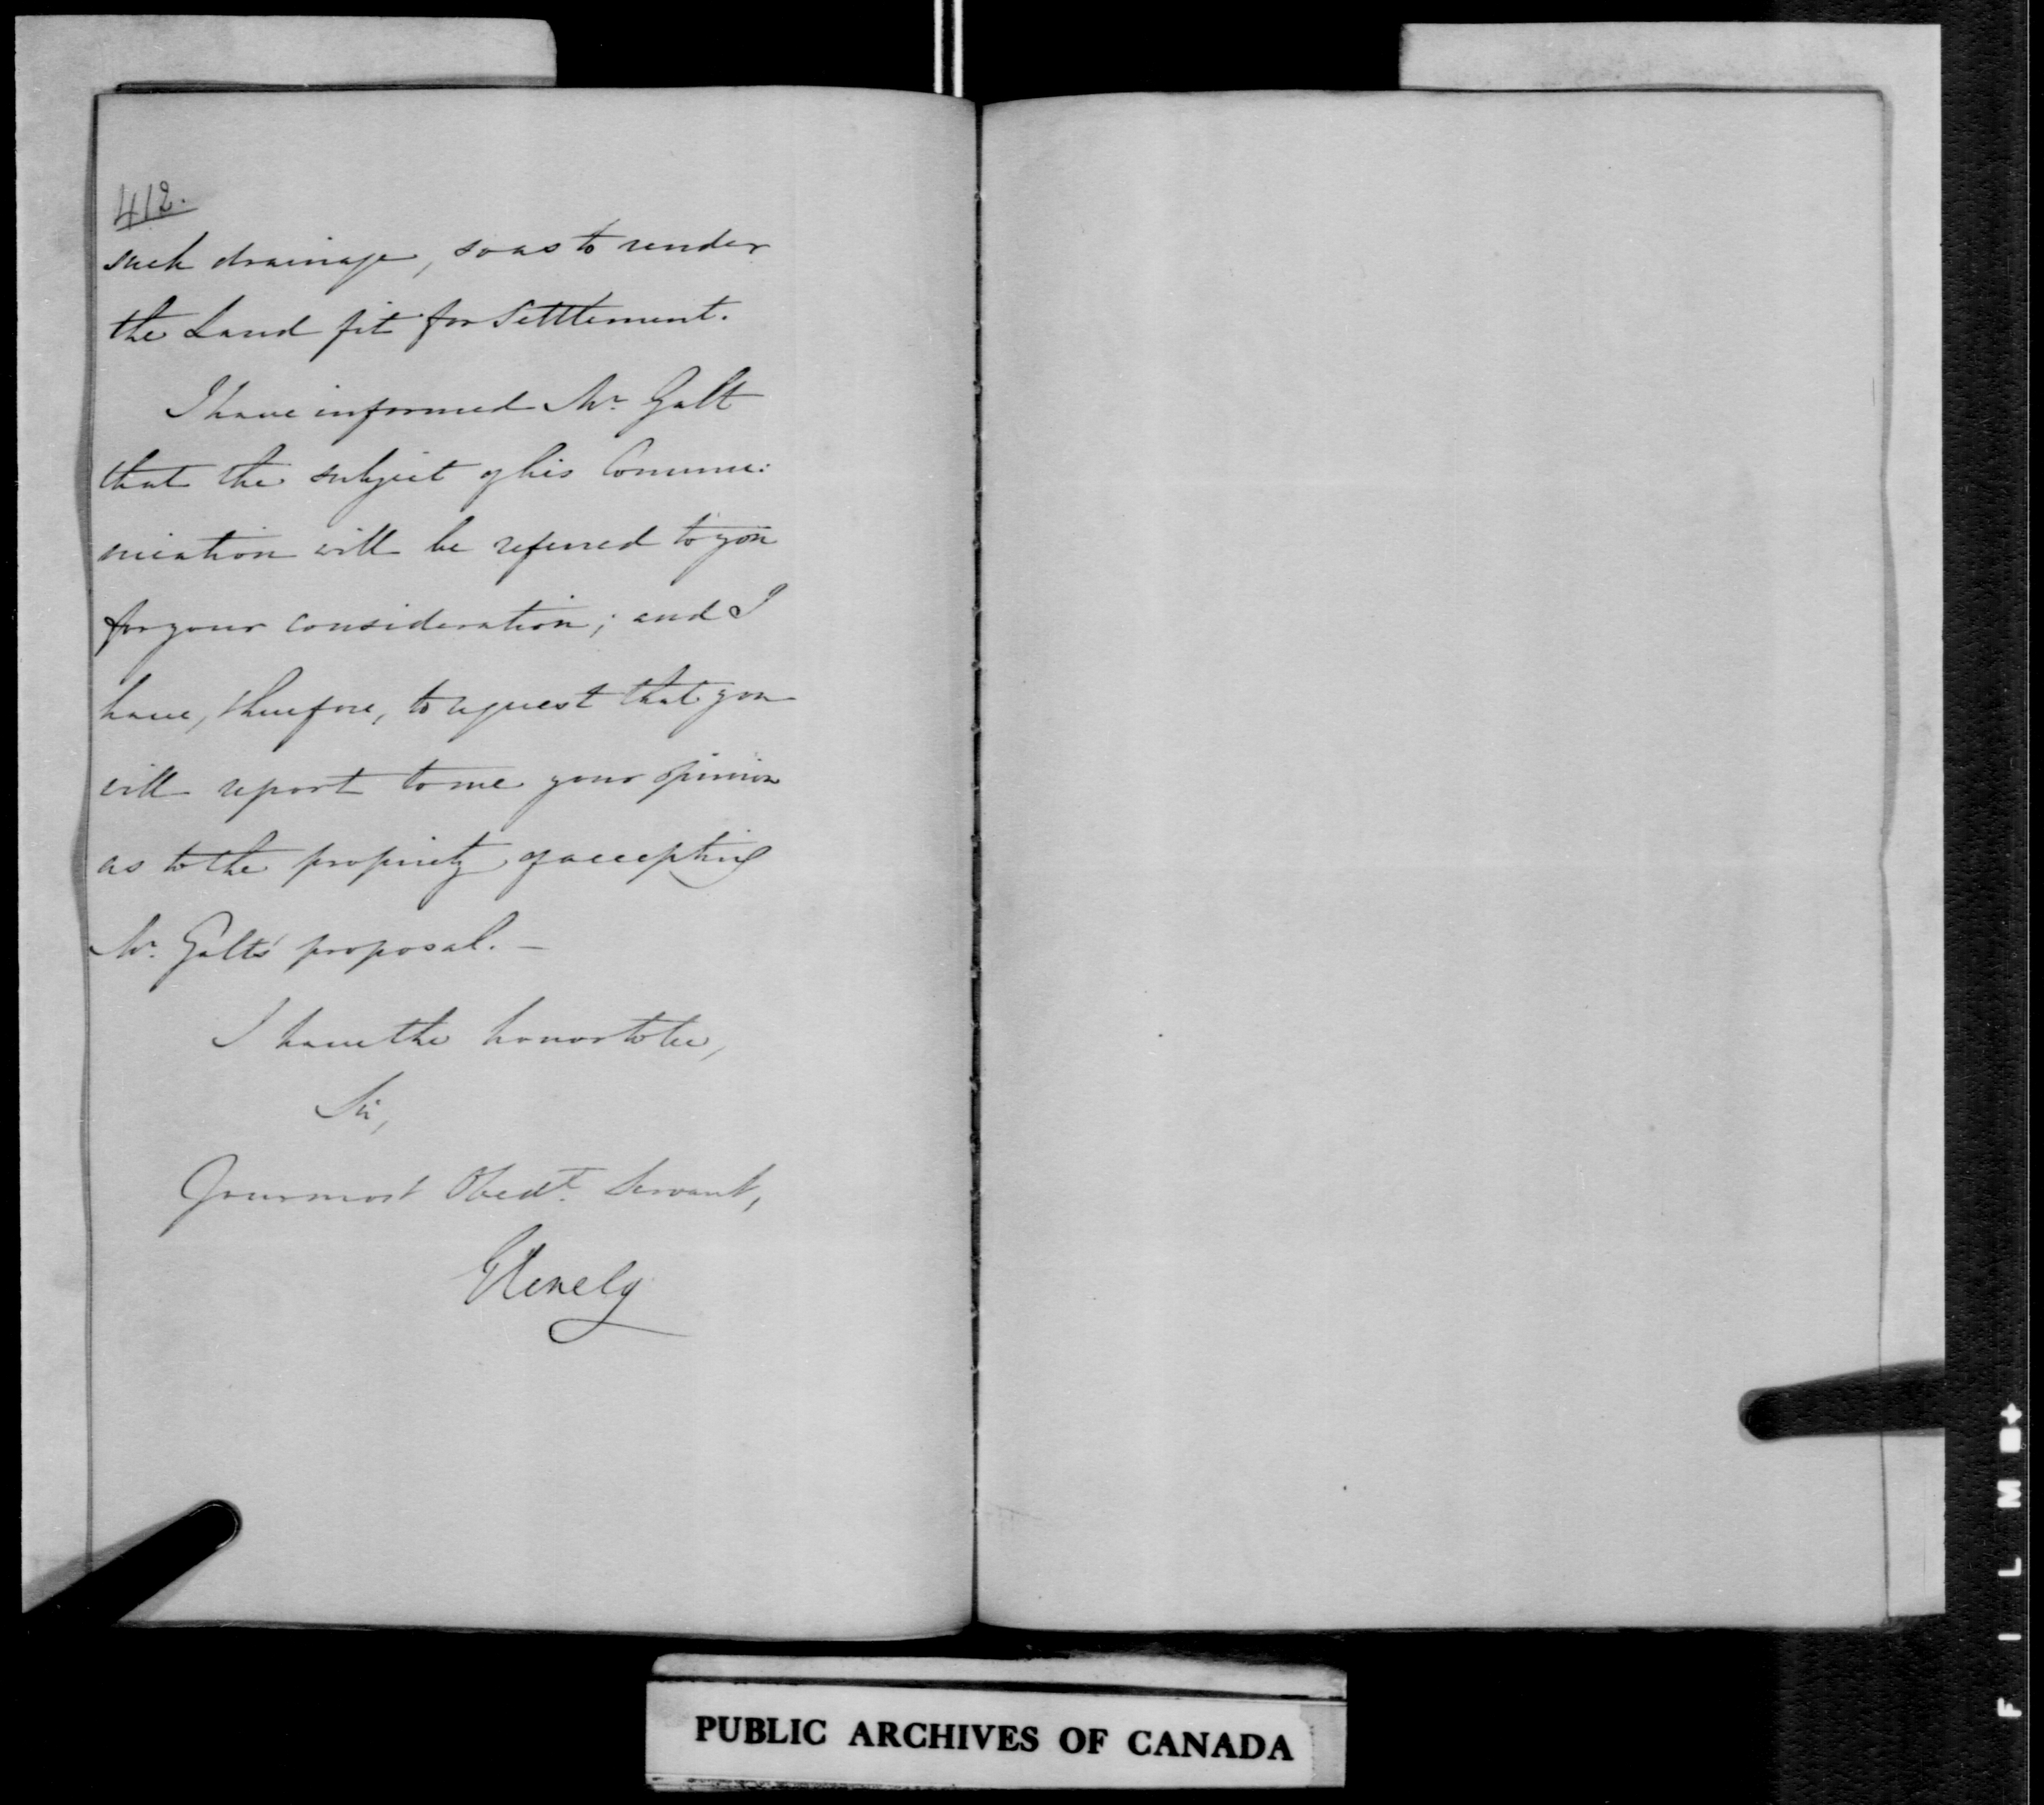 412.
such drainage, so as to render
the Land fit for Settlement.
I have informed Mr. Galt
that the subject of his Commu:
nication will be referred to you
for your consideration; and I
have, therefore, to request that you
will report to me your opinion
as to the propriety of accepting
Mr. Galt's proposal. —
I have the honor to be,
Sir,
Your most Obedt. Servant,
Glenelg
PUBLIC ARCHIVES OF CANADA
FILM